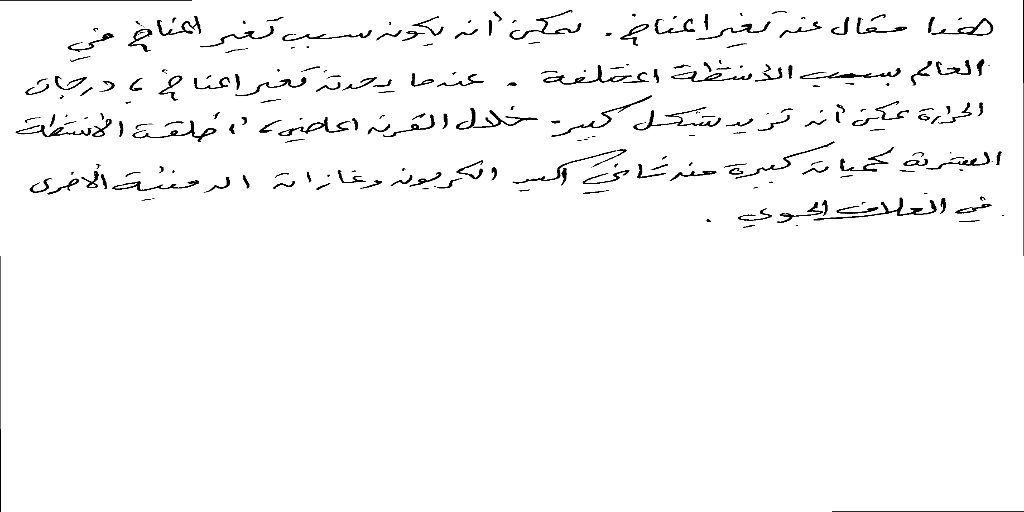 هذا مقال عن تغير المناخ. يمكن أن يكون سبب تغير المناخ في
العالم بسبب الأنشطة المختلفة. عندما يحدث تغير المناخ، درجات
الحرارة يمكن أن تزيد بشكل كبير. خلال القرن الماضي، أطلقت الأنشطة
البشرية كميات كبيرة من ثاني أكسيد الكربون وغازات الدفيئة الأخرى
في الغلاف الجوي.